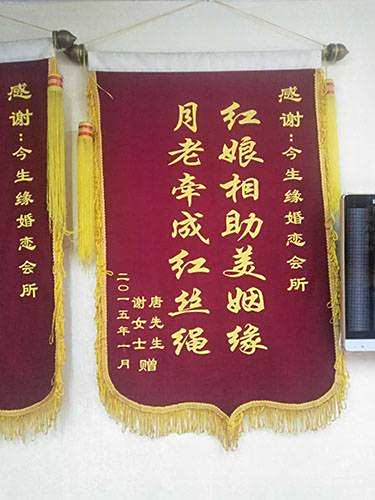 感谢：今生缘婚恋会所
红娘相助美姻缘
月老牵成红丝绳
唐先生
谢女士赠
二〇一五年一月
感谢：今生缘婚恋会所